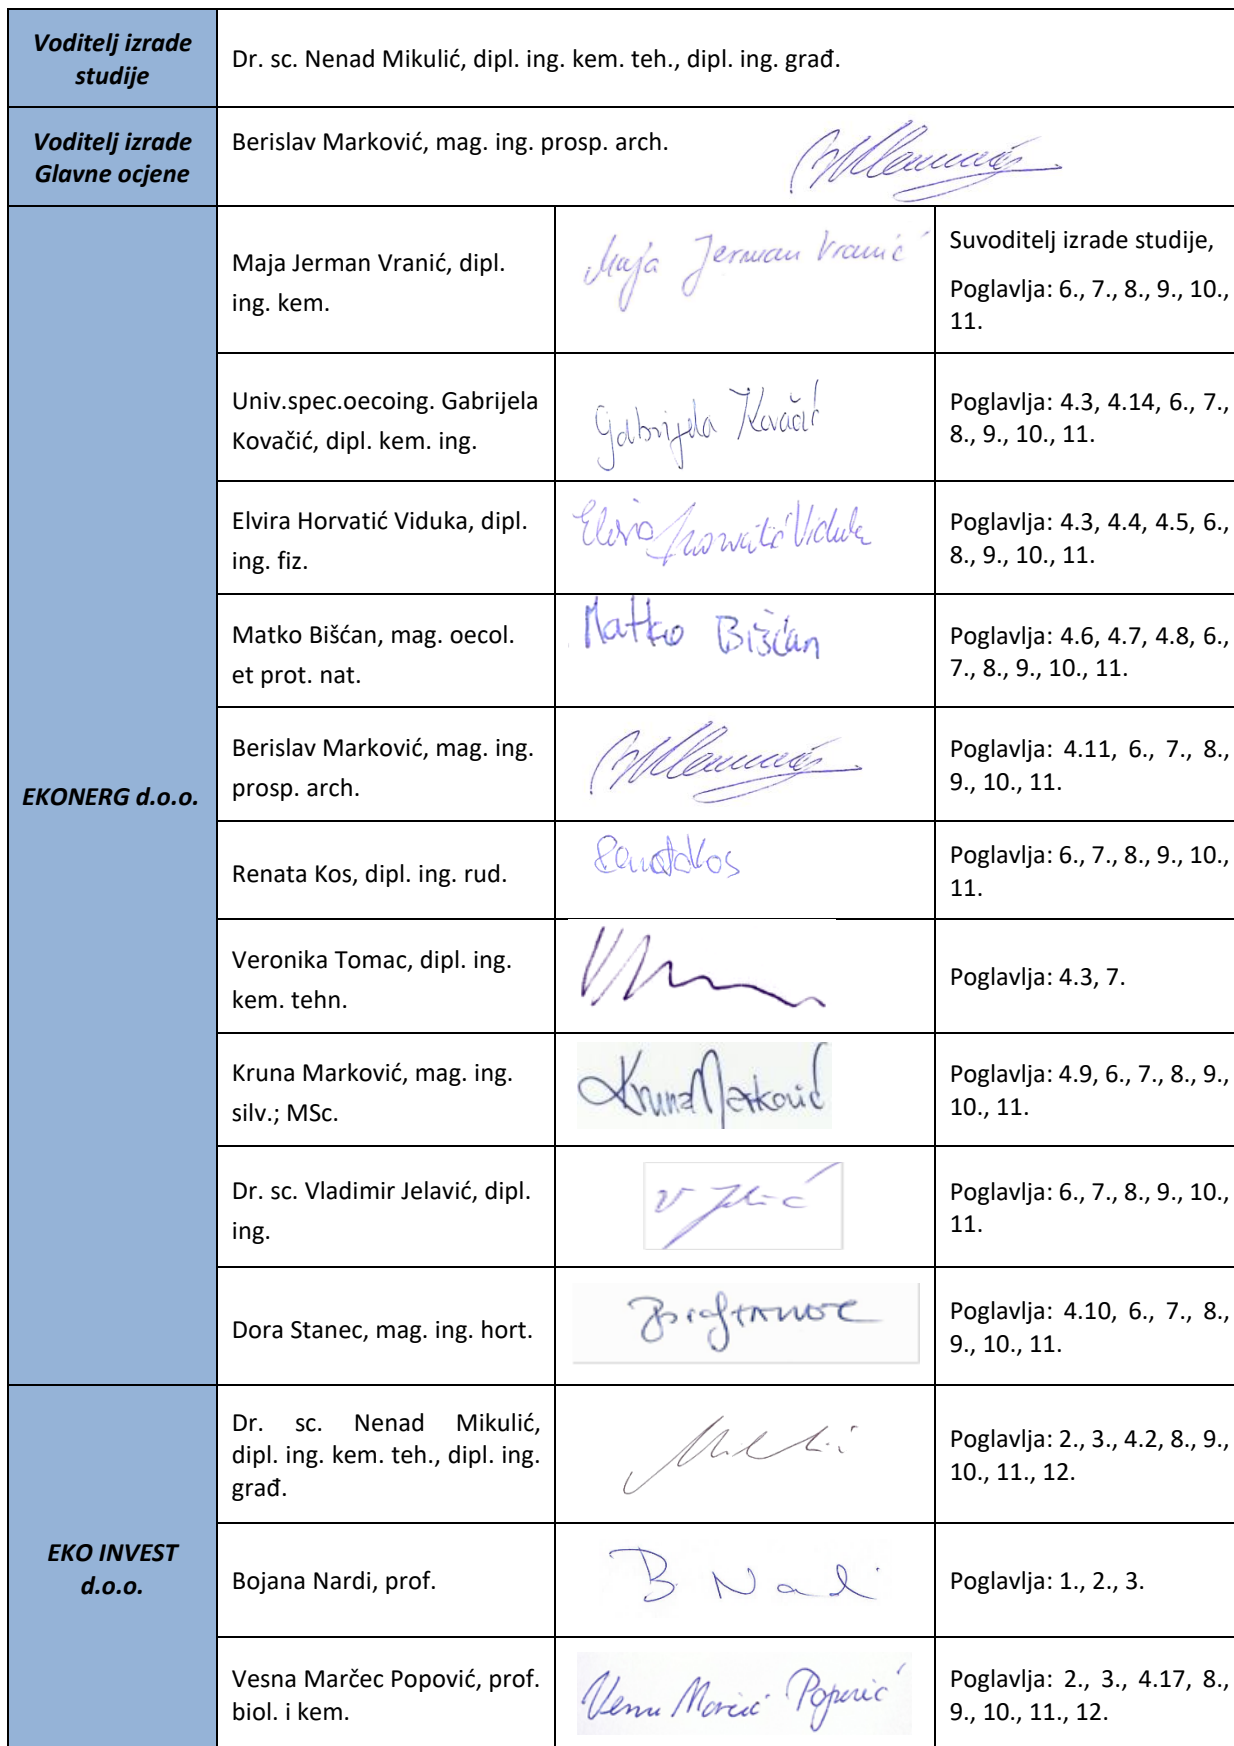 Voditelj izrade
studije
Dr. sc. Nenad Mikulić, dipl. ing. kem. teh., dipl. ing. građ.
Voditelj izrade
Glavne ocjene
Berislav Marković, mag. ing. prosp. arch.
EKONERG d.o.o.
Maja Jerman Vranić, dipl.
ing. kem.
Maja Jerman Vranić
Suvoditelj izrade studije,
Poglavlja: 6., 7., 8., 9., 10.,
11.
Univ.spec.oecoing. Gabrijela
Kovačić, dipl. kem. ing.
Gabrijela Kovačić
Poglavlja: 4.3, 4.14, 6., 7.,
8., 9., 10., 11.
Elvira Horvatić Viduka, dipl.
ing. fiz.
Elvira Horvatić Viduka
Poglavlja: 4.3, 4.4, 4.5, 6.,
8., 9., 10., 11.
Matko Bišćan, mag. oecol.
et prot. nat.
Matko Bišćan
Poglavlja: 4.6, 4.7, 4.8, 6.,
7., 8., 9., 10., 11.
Berislav Marković, mag. ing.
prosp. arch.
Poglavlja: 4.11, 6., 7., 8.,
9., 10., 11.
Renata Kos, dipl. ing. rud.
Renata Kos
Poglavlja: 6., 7., 8., 9., 10.,
11.
Veronika Tomac, dipl. ing.
kem. tehn.
Poglavlja: 4.3, 7.
Kruna Marković, mag. ing.
silv.; MSc.
Kruna Marković
Poglavlja: 4.9, 6., 7., 8., 9.,
10., 11.
Dr. sc. Vladimir Jelavić, dipl.
ing.
Poglavlja: 6., 7., 8., 9., 10.,
11.
Dora Stanec, mag. ing. hort.
Poglavlja: 4.10, 6., 7., 8.,
9., 10., 11.
EKO INVEST
d.o.o.
Dr. sc. Nenad Mikulić,
dipl. ing. kem. teh., dipl. ing.
građ.
Poglavlja: 2., 3., 4.2, 8., 9.,
10., 11., 12.
Bojana Nardi, prof.
B Nardi
Poglavlja: 1., 2., 3.
Vesna Marčec Popović, prof.
biol. i kem.
Vesna Marčec Popović
Poglavlja: 2., 3., 4.17, 8.,
9., 10., 11., 12.